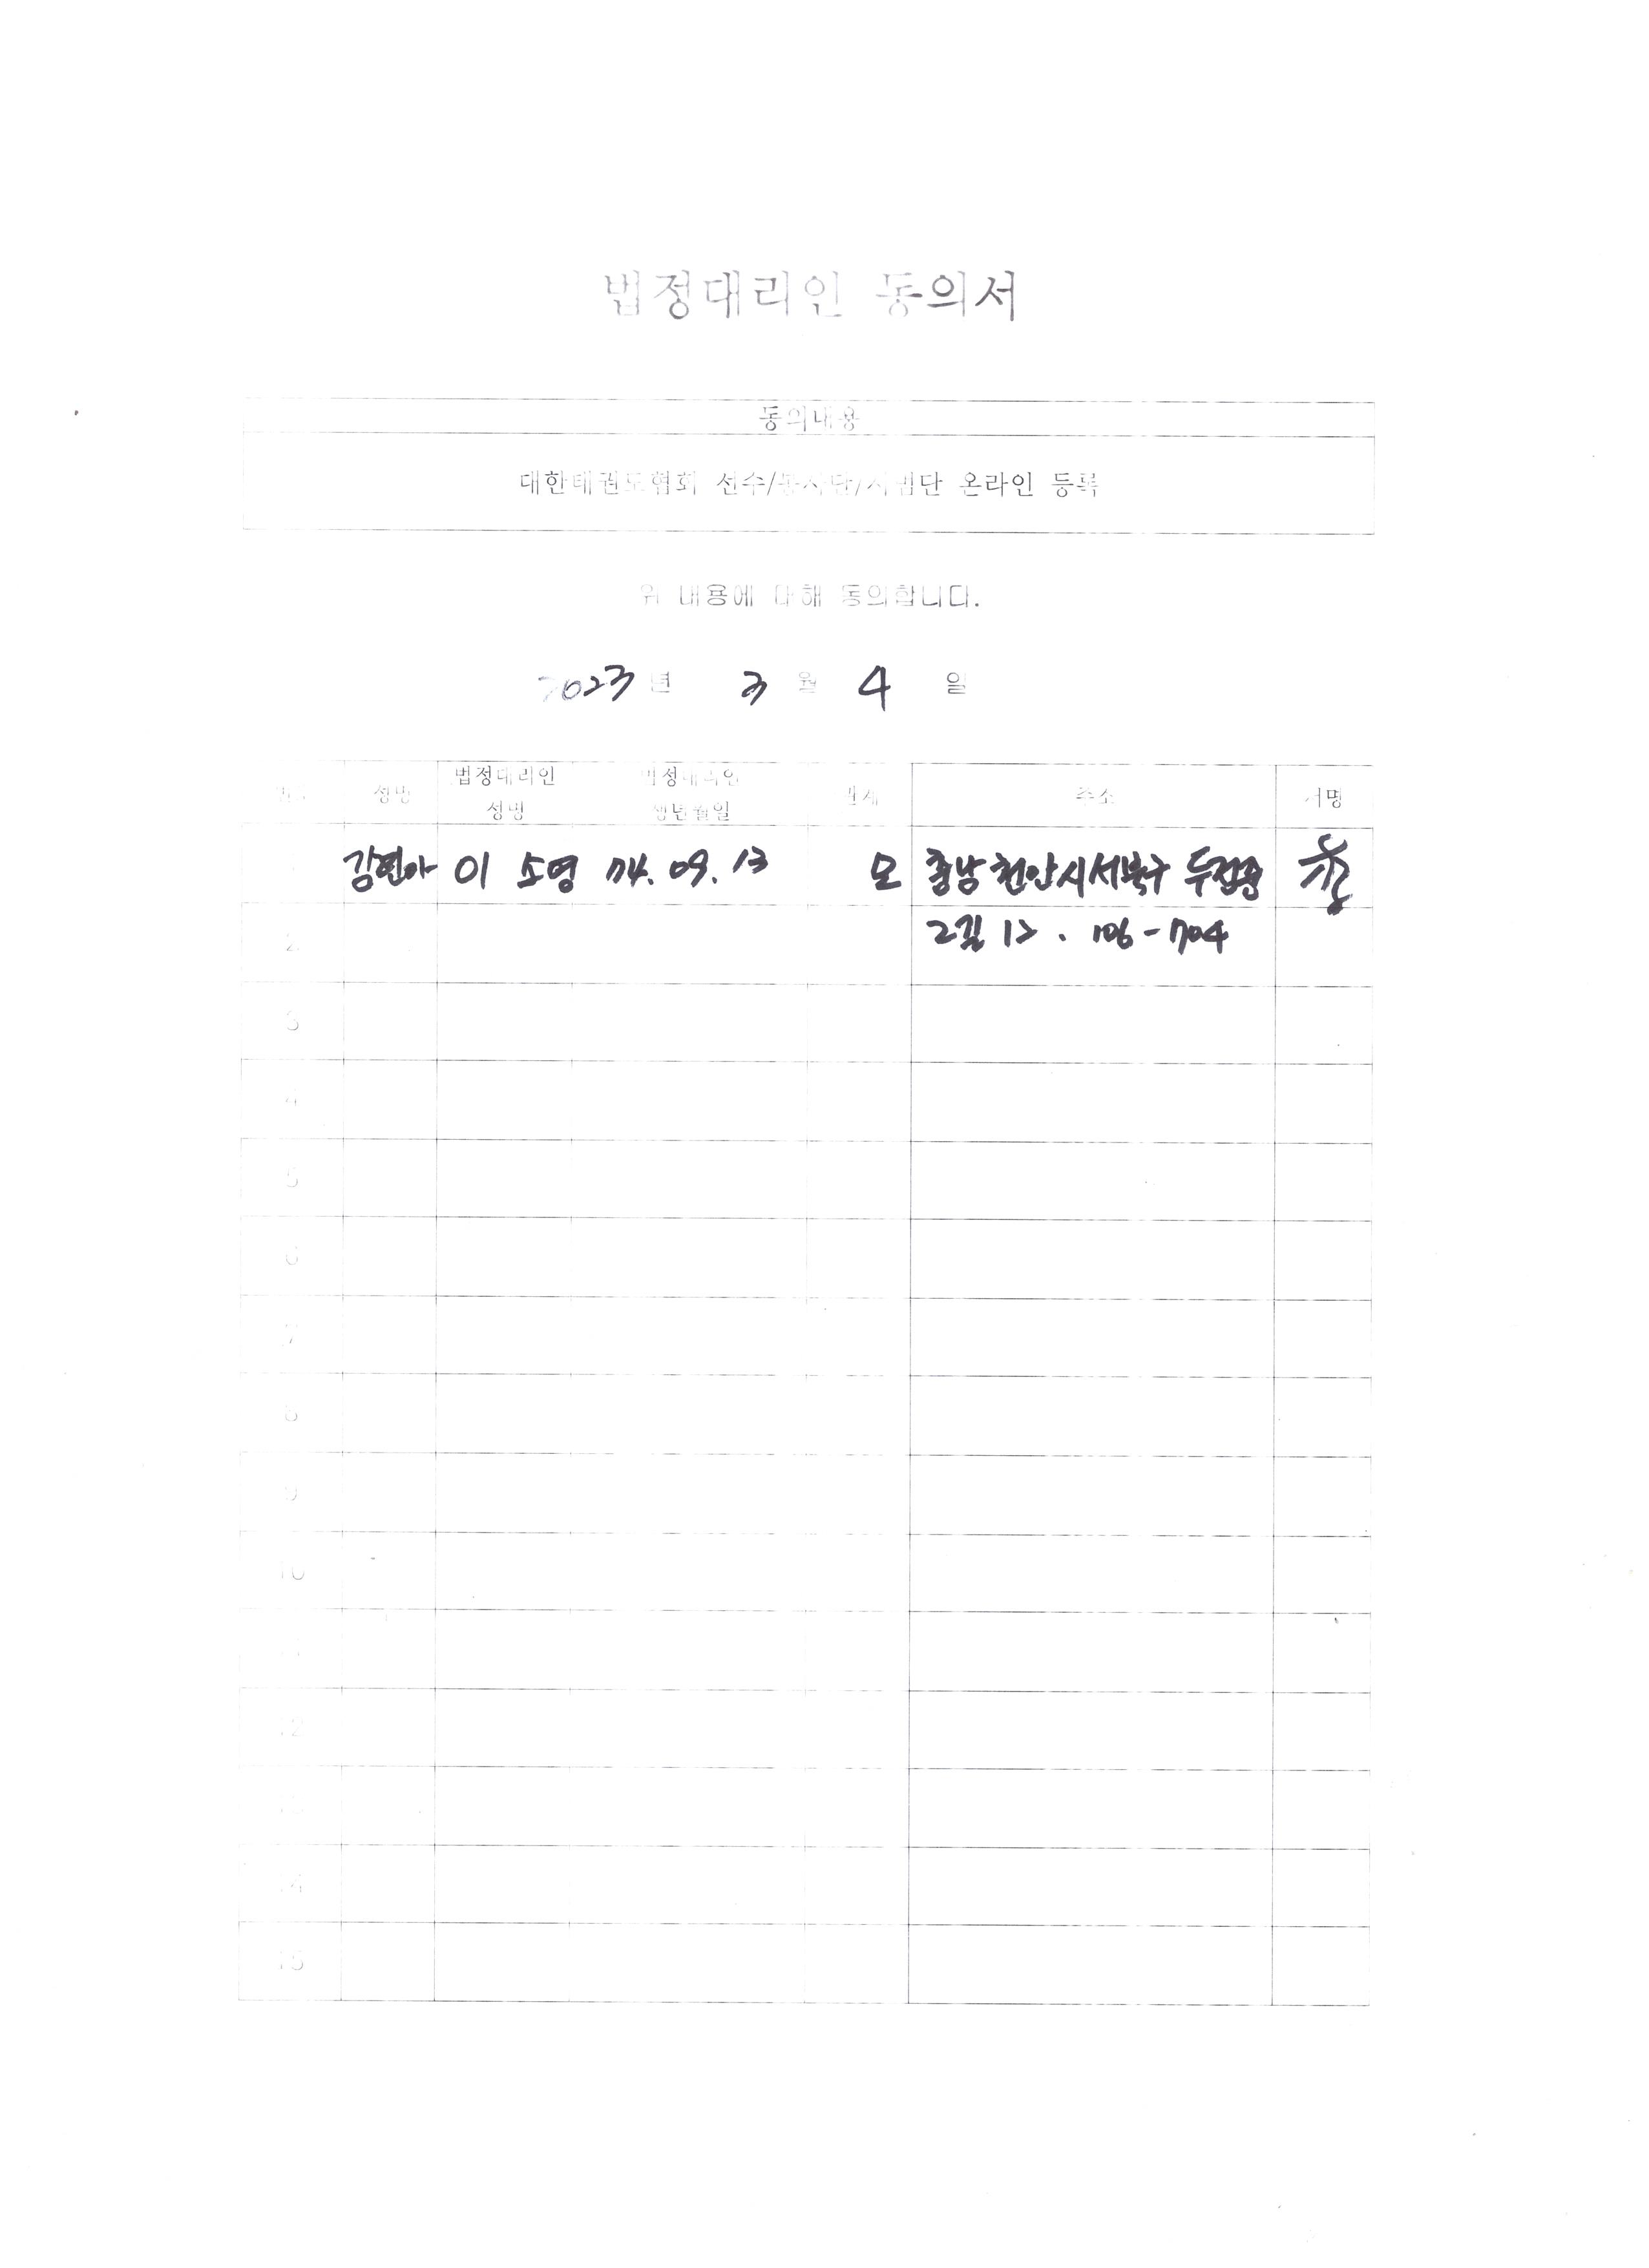 법정대리인 동의서
동의내용
대한태권도협회 선수/봉사단/시범단 온라인 등록
위 내용에 대해 동의합니다.
2023년 3월 4일
성명 법정대리인 성명 법정대리인 생년월일 관계 주소 서명
김현아 이소영 74. 09. 13 모 충남 천안시 서북구 두정중
2 2길 12. 106-704
3
4
5
6
7
8
9
10
12
14
15